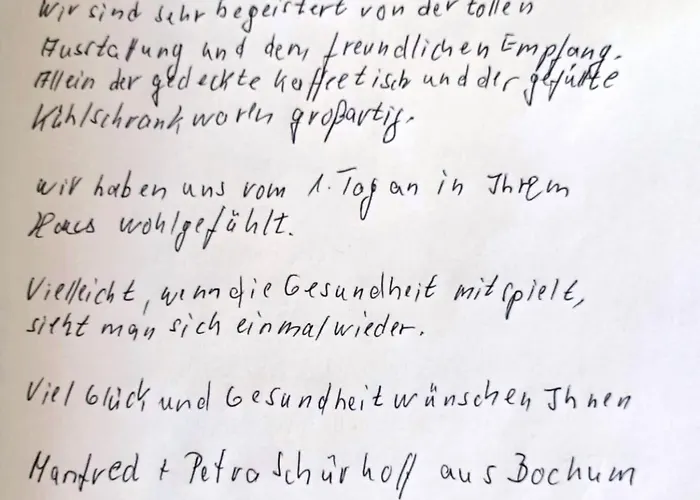 Wir sind sehr begeistert von der tollen
Ausstattung und dem freundlichen Empfang.
Allein der gedeckte Kaffeetisch und der gefüllte
Kühlschrank waren großartig.
Wir haben uns vom 1. Tag an in Ihrem
Haus wohlgefühlt.
Vielleicht, wenn die Gesundheit mitspielt,
sieht man sich einmal wieder.
Viel Glück und Gesundheit wünschen Ihnen
Manfred + Petra Schürhoff aus Bochum